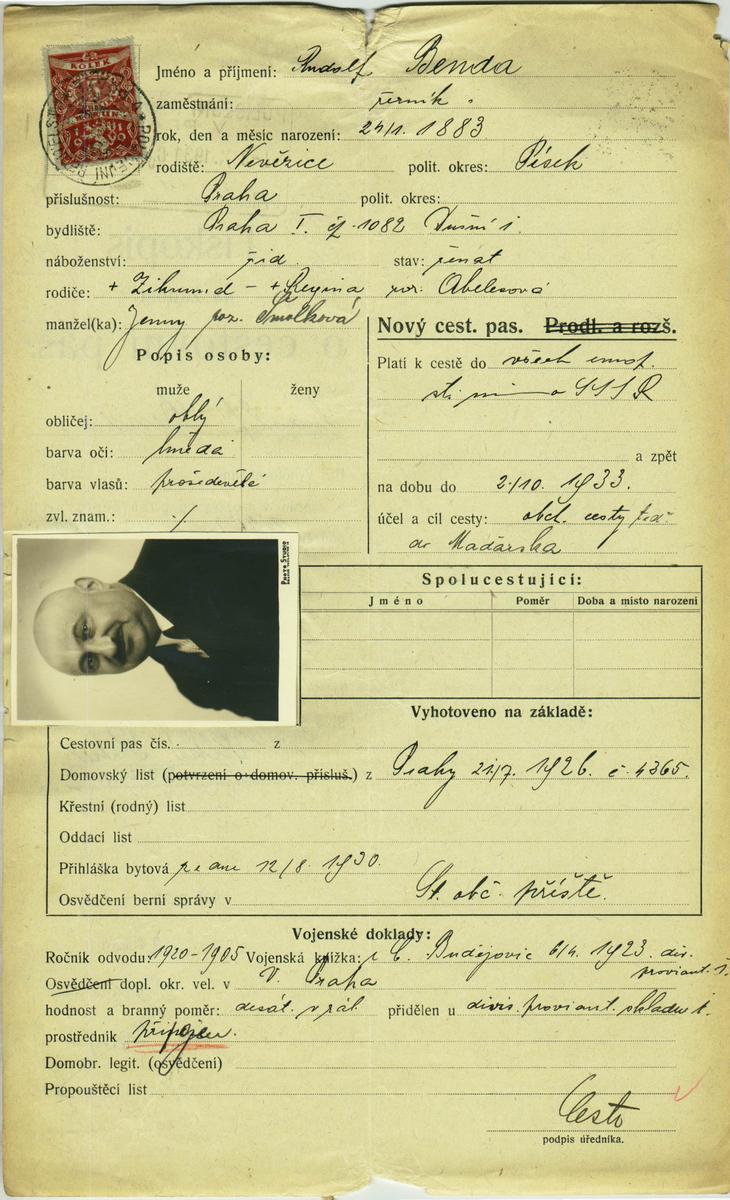 KOLEK
Jméno a příjmení: Rudolf Benda
zaměstnání: řezník
rok, den a měsíc narození: 24/1. 1883
rodiště: Nevězice polit. okres: Písek
příslušnost: Praha polit. okres:
bydliště: Praha I. čp. 1082 Dušní 1
náboženství: žid. stav: ženat
rodiče: + Zikmund - + Regina roz. Abelesová
manžel(ka): Jenny roz. Smolková
Nový cest. pas. Prodl. a rozš.
Popis osoby:
Platí k cestě do všech evrop.
muže ženy
států mimo SSSR
obličej: oblý
barva očí: hnědá
a zpět
barva vlasů: prošedivělé
na dobu do 2/10. 1933.
zvl. znam.: ./.
účel a cíl cesty: obch. cesty
do Maďarska
PHOTO STUDIO
Spolucestující:
Jméno Poměr Doba a místo narození
Vyhotoveno na základě:
Cestovní pas čís. z
Domovský list (potvrzení o domov. přísluš.) z Prahy 21/7. 1926. č. 4365.
Křestní (rodný) list
Oddací list
Přihláška bytová ze dne 12/8. 1930.
Osvědčení berní správy v St. obč. příště.
Vojenské doklady:
Ročník odvodu: 1920-1905 Vojenská knížka: z Č. Budějovic 6/4. 1923. div.
proviant. 1.
Osvědčení dopl. okr. vel. v V. Praha
hodnost a branný poměr: desát. v zál. přidělen u divis. proviant. skladu 1.
prostředník připojen.
Domobr. legit. (osvědčení)
Propouštěcí list
podpis úředníka.